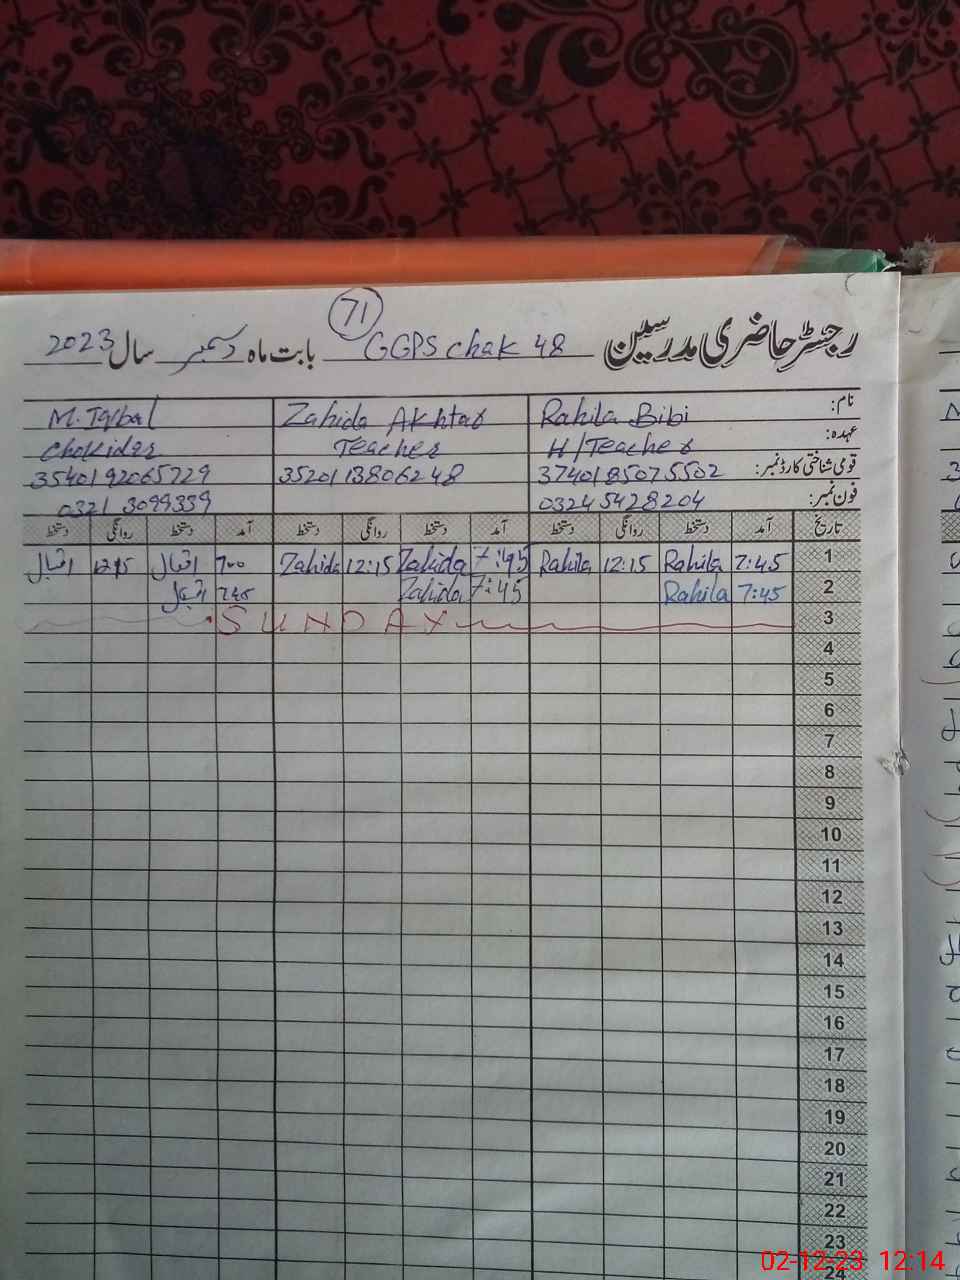 71
رجسٹر حاضری مدرسین GGPS chak 48 بابت ماہ دسمبر سال 2023
نام: Rahila Bibi Zahida Akhtar M. Iqbal
عہدہ: H/Teacher Teacher Chokider
قومی شناختی کارڈ نمبر: 3740185075502 3520113806248 3540192065729
فون نمبر: 03245428204 0321 3099339
تاریخ آمد دستخط روانگی دستخط آمد دستخط روانگی دستخط آمد دستخط روانگی دستخط
1 7:45 Rahila 12:15 Rahila 7:45 Zahida 12:15 Zahida 700 اقبال 1215 اقبال
2 7:45 Rahila 7:45 Zahida اقبال
3 SUNDAY
4
5
6
7
8
9
10
11
12
13
14
15
16
17
18
19
20
21
22
23
24
02-12-23 12:14